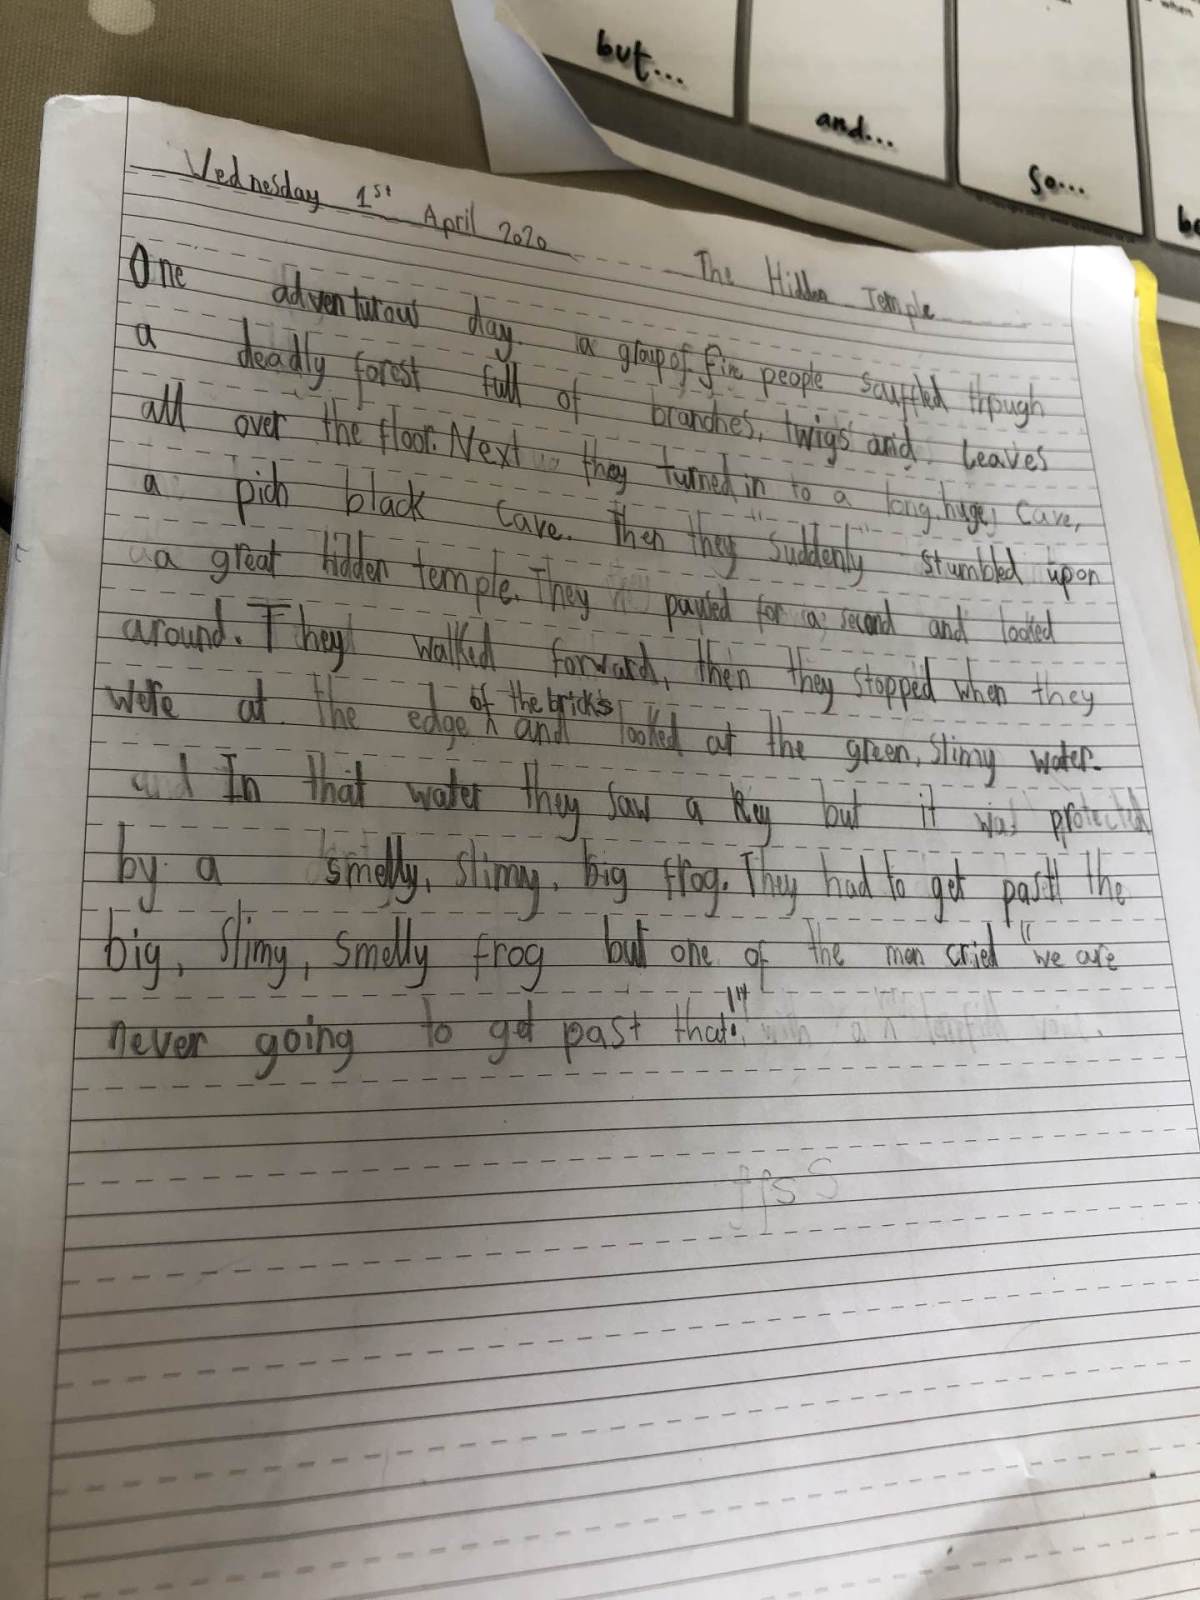 but...
and...
so...
when
Wednesday 1st April 2020
The Hidden Temple
One adventurous day. a group of five people scuffled through
a deadly forest full of branches, twigs and leaves
all over the floor. Next they turned in to a long, huge, cave,
a pich black cave. Then they "suddenly" stumbled upon
a great hidden temple. They paused for a second and looked
around. They walked forward, then they stopped when they
were at the edge of the bricks and looked at the green, slimy water.
In that water they saw a key but it was protected
by a smelly, slimy, big frog. They had to get past the
big, slimy, smelly frog but one of the men cried "we are
never going to get past that!"